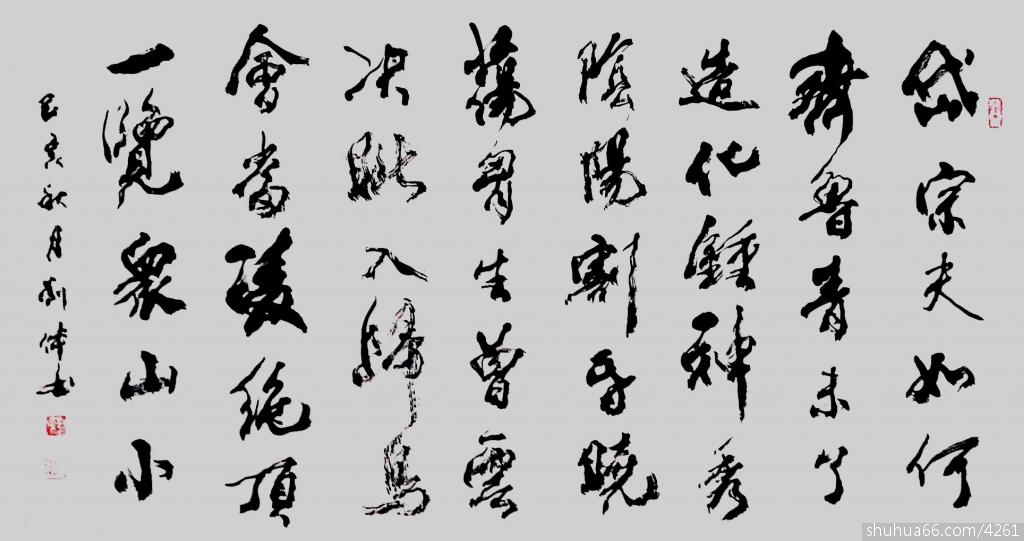 岱宗夫如何
齊魯青未了
造化鍾神秀
陰陽割昏曉
蕩胷生曾雲
决眦入歸鳥
會當凌絕頂
一覽衆山小
己亥秋月刘体书
shuhua66.com/4261